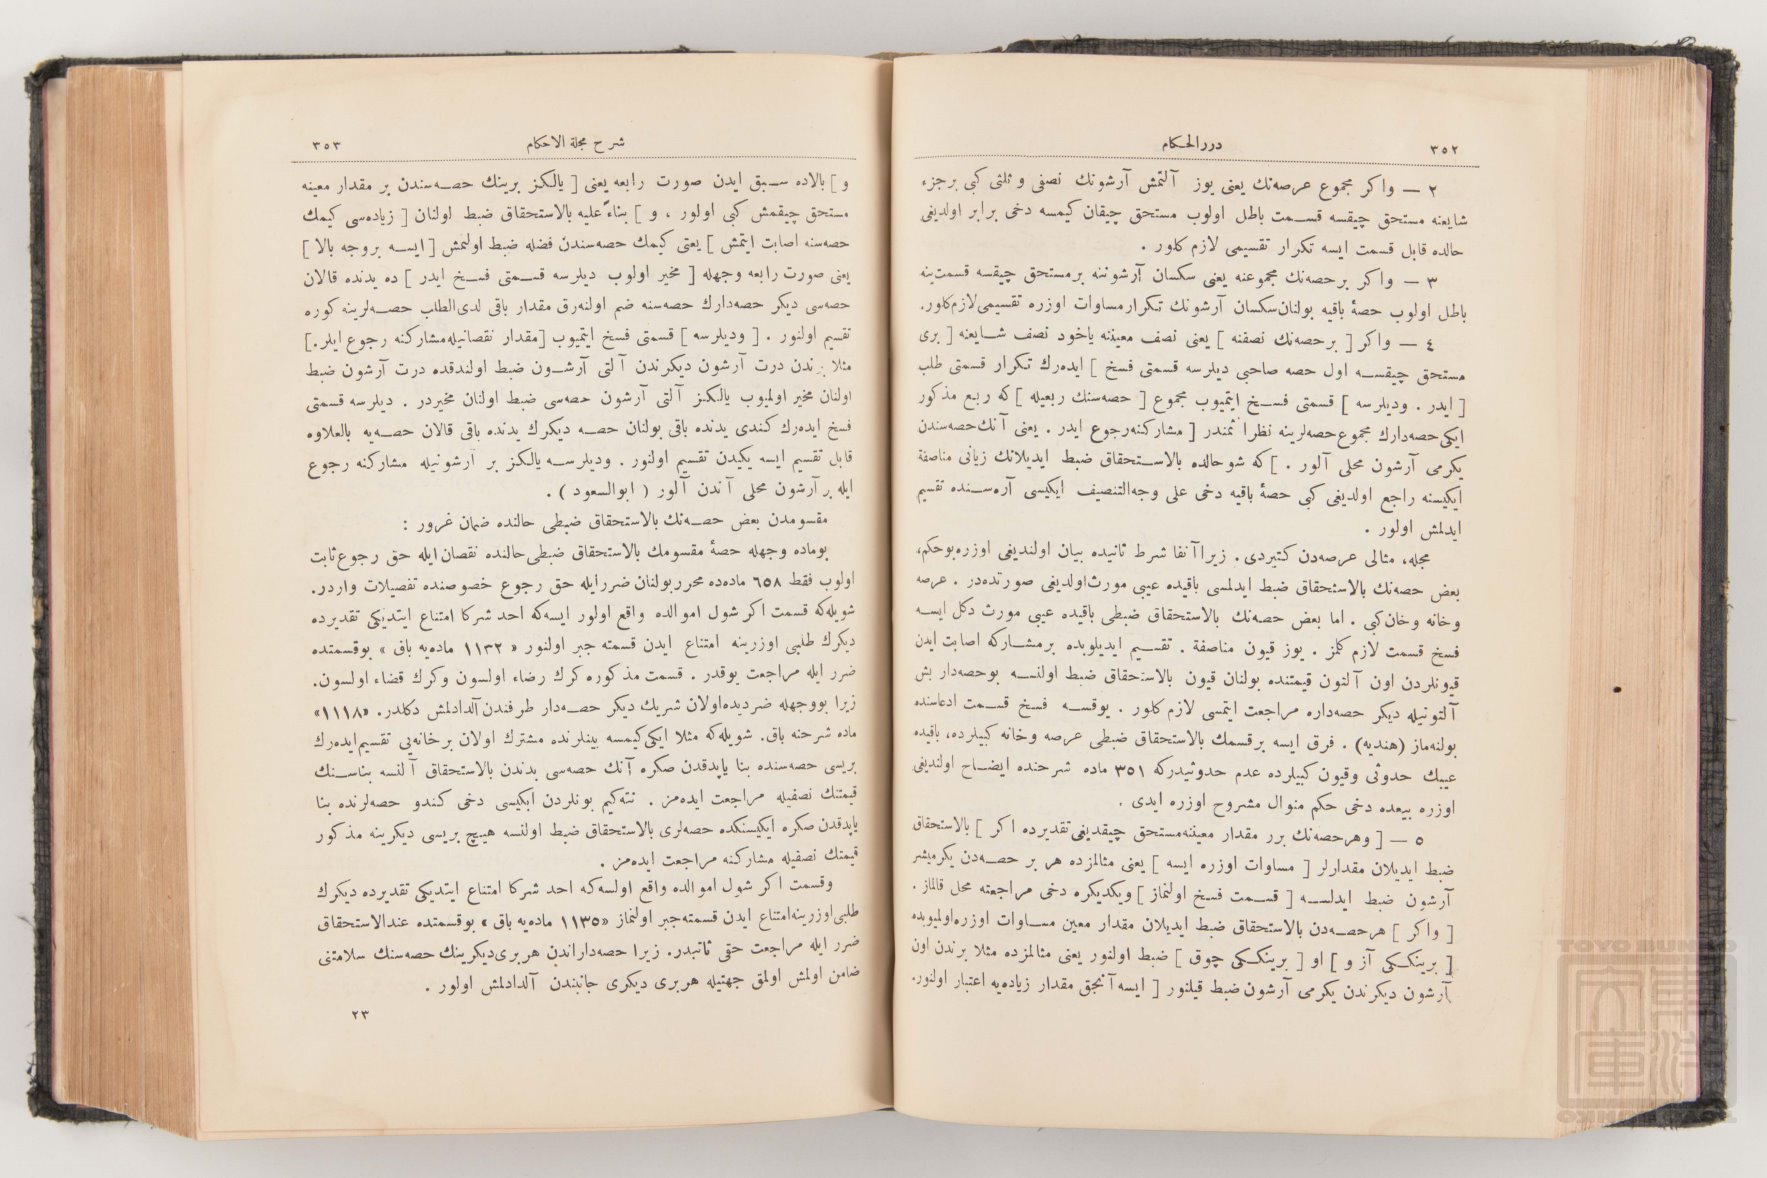 ٣٥٢
دررالحكام
٢ — واكر مجموع عرصه‌نك يعنى يوز آلتمش آرشونك نصفى و ثلثى كبى برجزء
شايعنه مستحق چيقسه قسمت باطل اولوب مستحق چيقان كيمسه دخى برابر اولديغى
حالده قابل قسمت ايسه تكرار تقسيمى لازم كلور .
٣ — واكر برحصه‌نك مجموعنه يعنى سكسان آرشوننه برمستحق چيقسه قسمت‌ينه
باطل اولوب حصهٔ باقيه بولنان‌سكسان آرشونك تكرارمساوات اوزره تقسيمى‌لازم‌كلور.
٤ — واكر [ برحصه‌نك نصفنه ] يعنى نصف معيننه ياخود نصف شايعنه [ برى
مستحق چيقسه اول حصه صاحبى ديلرسه قسمتى فسخ ] ايده‌رك تكرار قسمتى طلب
[ ايدر . وديلرسه ] قسمتى فسخ ايتميوب مجموع [ حصه‌سنك ربعيله ] كه ربع مذكور
ايكى‌حصه‌دارك مجموع‌حصه‌لرينه نظراً ثمندر [ مشاركنه‌رجوع ايدر . يعنى آنك‌حصه‌سندن
يكرمى آرشون محلى آلور . ] كه شوحالده بالاستحقاق ضبط ايديلانك زيانى مناصفة
ايكيسنه راجع اولديغى كبى حصهٔ باقيه دخى على وجه‌التنصيف ايكيسى آره‌سنده تقسيم
ايدلمش اولور .
مجله، مثالى عرصه‌دن كتيردى. زيراآنفا شرط ثانيده بيان اولنديغى اوزره‌بوحكم،
بعض حصه‌نك بالاستحقاق ضبط ايدلمسى باقيده عيبى مورث‌اولديغى صورتده‌در . عرصه
وخانه وخان‌كبى . اما بعض حصه‌نك بالاستحقاق ضبطى باقيده عيبى مورث دكل ايسه
فسخ قسمت لازم كلمز . يوز قيون مناصفة . تقسيم ايديلوبده برمشاركه اصابت ايدن
قيونلردن اون آلتون قيمتنده بولنان قيون بالاستحقاق ضبط اولنسه بوحصه‌دار بش
آلتونيله ديكر حصه‌داره مراجعت ايتمسى لازم كلور . يوقسه فسخ قسمت ادعاسنده
بولنه‌ماز (هنديه) . فرق ايسه برقسمك بالاستحقاق ضبطى عرصه وخانه كبيلرده، باقيده
عيبك حدوثى وقيون كبيلرده عدم حدوثيدركه ٣٥١ ماده شرحنده ايضاح اولنديغى
اوزره بيعده دخى حكم منوال مشروح اوزره ايدى .
٥ — [ وهرحصه‌نك برر مقدار معيننه‌مستحق چيقديغى‌تقديرده اكر ] بالاستحقاق
ضبط ايديلان مقدارلر [ مساوات اوزره ايسه ] يعنى مثالمزده هر بر حصه‌دن يكرميشر
آرشون ضبط ايدلسه [ قسمت فسخ اولنماز ] ويكديكره دخى مراجعته محل قالماز .
[ واكر ] هرحصه‌دن بالاستحقاق ضبط ايديلان مقدار معين مساوات اوزره‌اولميوبده
[ برينككى آز و ] او [ برينككى چوق ] ضبط اولنور يعنى مثالمزده مثلا برندن اون
آرشون ديكرندن يكرمى آرشون ضبط قيلنور [ ايسه آنجق مقدار زياده‌يه اعتبار اولنور.
شرح مجلة الاحكام
٣٥٣
و ] بالاده سبق ايدن صورت رابعه يعنى [ يالكز برينك حصه‌سندن بر مقدار معينه
مستحق چيقمش كبى اولور ، و ] بناءً عليه بالاستحقاق ضبط اولنان [ زياده‌سى كيمك
حصه‌سنه اصابت ايتمش ] يعنى كيمك حصه‌سندن فضله ضبط اولنمش [ ايسه بروجه بالا ]
يعنى صورت رابعه وجهله [ مخير اولوب ديلرسه قسمتى فسخ ايدر ] ده يدنده قالان
حصه‌سى ديكر حصه‌دارك حصه‌سنه ضم اولنه‌رق مقدار باقى لدى‌الطلب حصه‌لرينه كوره
تقسيم اولنور . [ وديلرسه ] قسمتى فسخ ايتميوب [مقدار نقصانيله‌مشاركنه رجوع ايلر.]
مثلا برندن درت آرشون ديكرندن آلتى آرشون ضبط اولندقده درت آرشون ضبط
اولنان مخير اولميوب يالكز آلتى آرشون حصه‌سى ضبط اولنان مخيردر . ديلرسه قسمتى
فسخ ايده‌رك كندى يدنده باقى بولنان حصه ديكرك يدنده باقى قالان حصه‌يه بالعلاوه
قابل تقسيم ايسه يكيدن تقسيم اولنور . وديلرسه يالكز بر آرشونيله مشاركنه رجوع
ايله بر آرشون محلى آندن آلور ( ابوالسعود ) .
مقسومدن بعض حصه‌نك بالاستحقاق ضبطى حالنده ضمان غرور :
بوماده وجهله حصهٔ مقسومك بالاستحقاق ضبطى‌حالنده نقصان ايله حق رجوع ثابت
اولوب فقط ٦٥٨ ماده‌ده محرربولنان ضررايله حق رجوع خصوصنده تفصيلات واردر.
شويله‌كه قسمت اكر شول اموالده واقع اولور ايسه‌كه احد شركا امتناع ايتديكى تقديرده
ديكرك طلبى اوزرينه امتناع ايدن قسمته جبر اولنور « ١١٣٢ ماده‌يه باق » بوقسمتده
ضرر ايله مراجعت يوقدر . قسمت مذكوره كرك رضاء اولسون وكرك قضاء اولسون.
زيرا بووجهله ضرديده‌اولان شريك ديكر حصه‌دار طرفندن‌آلدادلمش دكلدر. «١١١٨»
ماده شرحنه باق. شويله‌كه مثلا ايكى‌كيمسه بينلرنده مشترك اولان برخانه‌يى تقسيم‌ايده‌رك
بريسى حصه‌سنده بنا ياپدقدن صكره آنك حصه‌سى يدندن بالاستحقاق آلنسه بناسنك
قيمتنك نصفيله مراجعت ايده‌مز . نته‌كيم بونلردن ايكيسى دخى كندو حصه‌لرنده بنا
ياپدقدن صكره ايكيسنكده حصه‌لرى بالاستحقاق ضبط اولنسه هيچ بريسى ديكرينه مذكور
قيمتك نصفيله مشاركنه مراجعت ايده‌مز .
وقسمت اكر شول اموالده واقع اولسه‌كه احد شركا امتناع ايتديكى تقديرده ديكرك
طلبى‌اوزرينه‌امتناع ايدن قسمته‌جبر اولنماز «١١٣٥ ماده‌يه باق» بوقسمتده عندالاستحقاق
ضرر ايله مراجعت حقى ثابتدر. زيرا حصه‌داراندن هربرى‌ديكرينك حصه‌سنك سلامتنى
ضامن اولمش اولمق جهتيله هربرى ديكرى جانبندن آلدادلمش اولور .
٢٣
TOYO BUNKO
東洋文庫